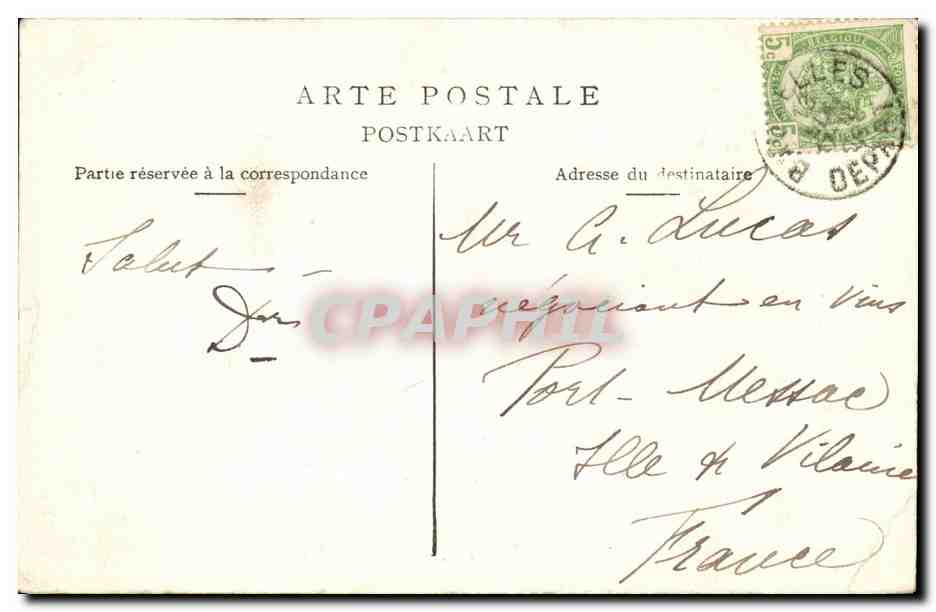 BELGIQUE
5c
5c
ELLES
DEPART
ARTE POSTALE
POSTKAART
Partie réservée à la correspondance
Adresse du destinataire
Salut
Mr A. Lucas
négociant en vins
Port-Messac
Ille & Vilaine
France
CPAPHIL